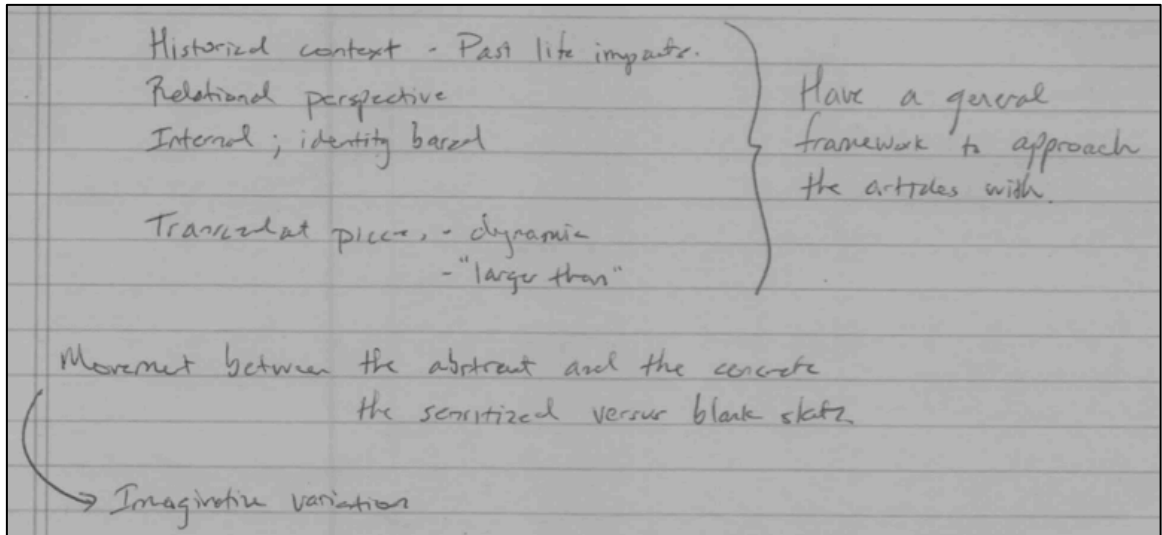 Historical context - Past life impacts.
Relational perspective
Internal ; identity based
Transcendent piece, - dynamic
- "larger than"
Have a general
framework to approach
the articles with.
Movement between the abstract and the concrete
the sensitized versus blank slate
Imaginative variation